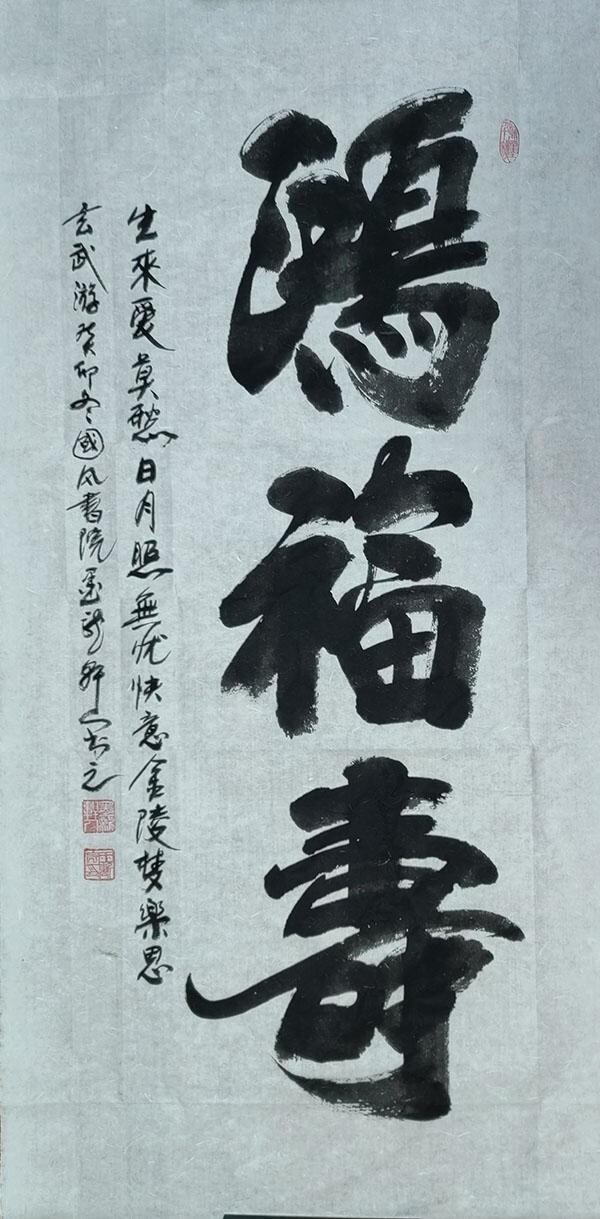 鴻福壽
生來愛莫愁日月照無忧快意金陵雙樂思
玄武游癸卯冬國风書院墨龍軒人书之